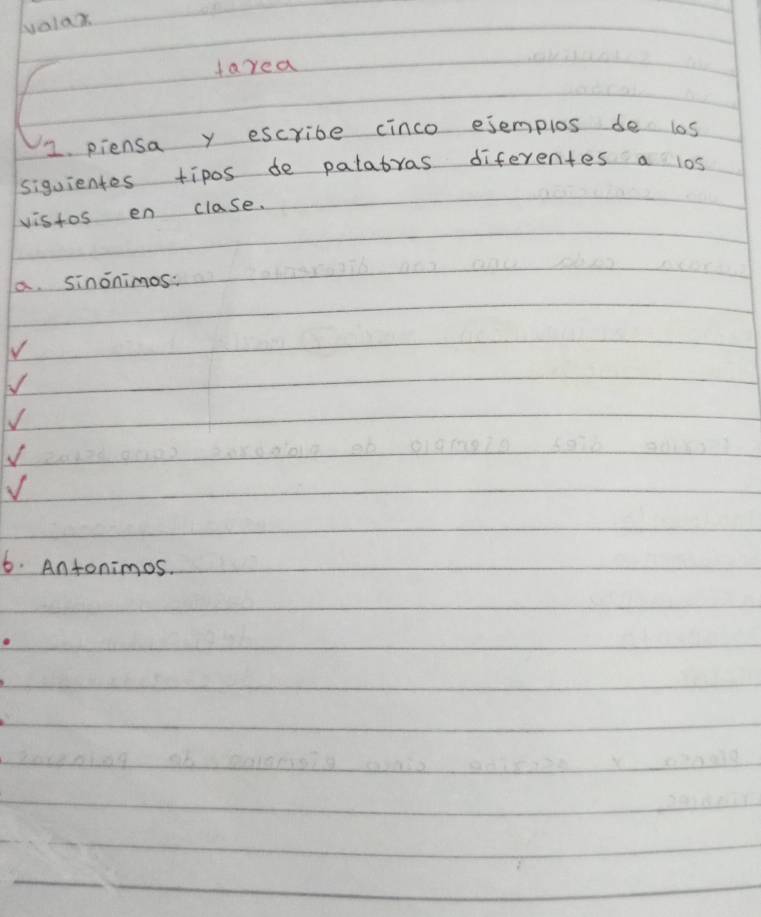 volar.
tarea
1. piensa y escribe cinco ejemplos de los
siguientes tipos de palabras diferentes a los
vistos en clase.
a. sinónimos:
b. Antonimos.